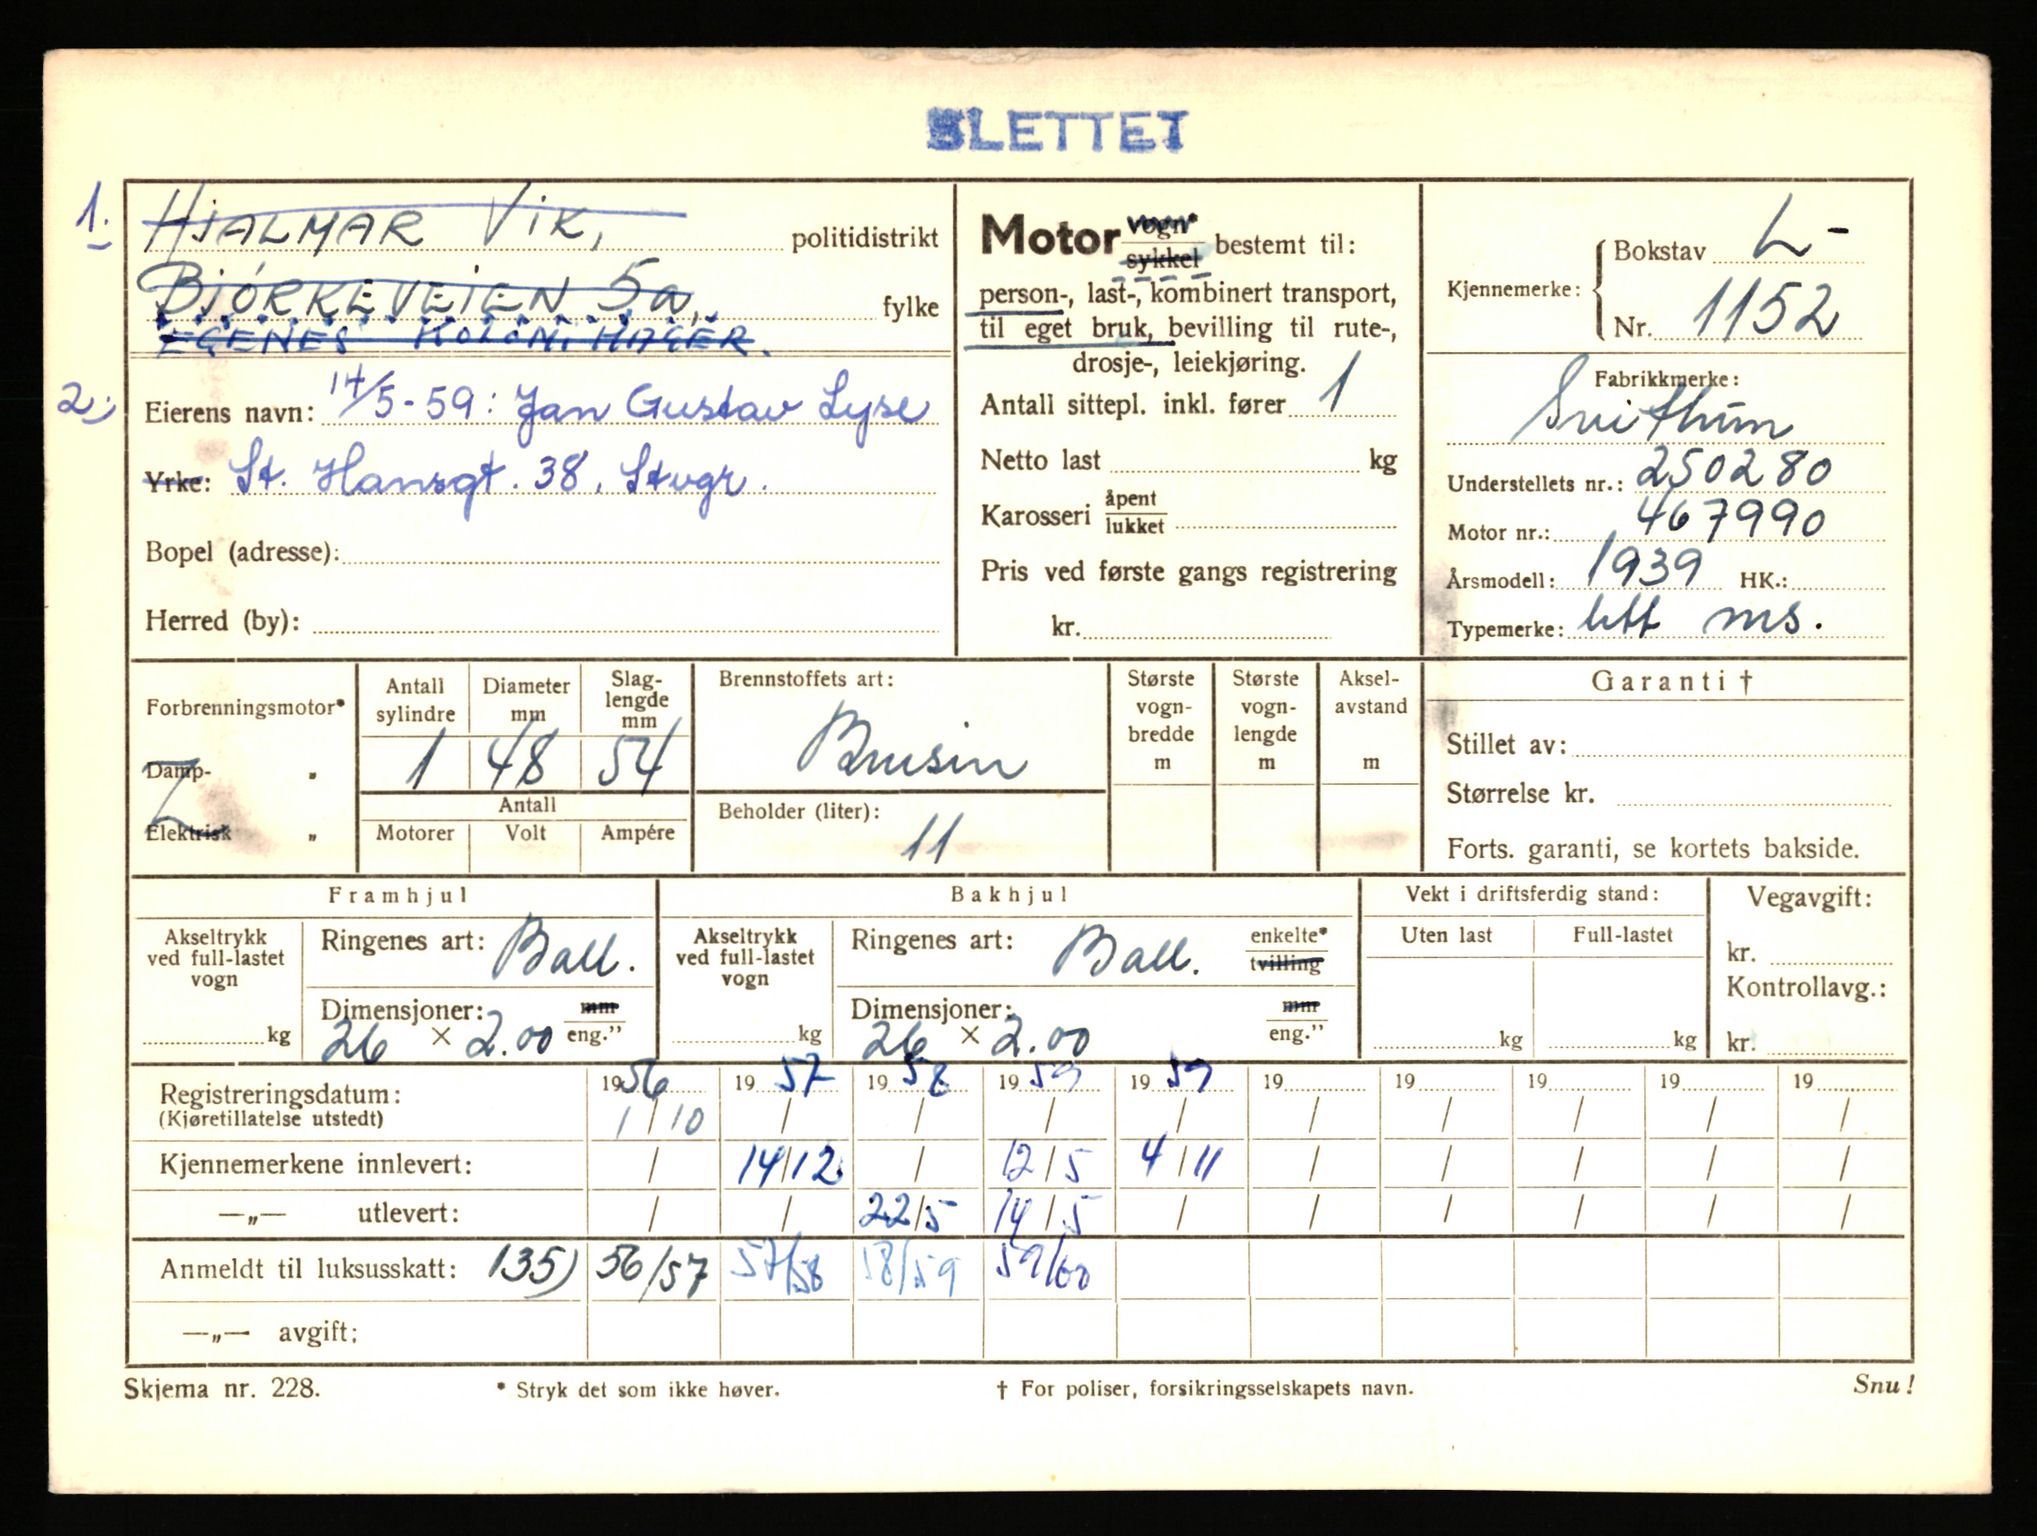 SLETTET
1. HJALMAR VIK, politidistrikt
BJÖRKEVEIEN 5a, fylke
EGENES KOLONIHAGER.
2. Eierens navn: 14/5-59: Jan Gustav Lyse
Yrke: St. Hansgt. 38, Stvgr.
Bopel (adresse):
Herred (by):
Motor vogn* sykkel bestemt til:
person-, last-, kombinert transport,
til eget bruk, bevilling til rute-,
drosje-, leiekjøring.
Antall sittepl. inkl. fører 1
Netto last kg
Karosseri åpent lukket
Pris ved første gangs registrering
kr.
Kjennemerke: Bokstav L-
Nr. 1152
Fabrikkmerke:
Svithun
Understellets nr.: 250280
Motor nr.: 467990
Årsmodell: 1939 HK.:
Typemerke: lett ms.
Forbrenningsmotor*
Damp- "
Elektrisk "
Antall sylindre Diameter mm Slag-lengde mm
1 48 54
Antall
Motorer Volt Ampére
Brennstoffets art:
Bensin
Beholder (liter):
11
Største vogn-bredde m
Største vogn-lengde m
Aksel-avstand m
Garanti †
Stillet av:
Størrelse kr.
Forts. garanti, se kortets bakside.
Framhjul
Akseltrykk ved full-lastet vogn kg
Ringenes art: Ball.
Dimensjoner: mm
26 × 2.00 eng."
Bakhjul
Akseltrykk ved full-lastet vogn kg
Ringenes art: Ball. enkelte* tvilling
Dimensjoner: mm
26 × 2.00 eng."
Vekt i driftsferdig stand:
Uten last Full-lastet
kg kg
Vegavgift:
kr.
Kontrollavg.:
kr.
Registreringsdatum: 1956 1957 1958 1959 1959 19 19 19 19 19
(Kjøretillatelse utstedt) 1/10 / / / / / / / / /
Kjennemerkene innlevert: / 14/12 / 12/5 4/11 / / / / /
—„— utlevert: / / 22/5 14/5 / / / / / /
Anmeldt til luksusskatt: 135) 56/57 57/58 58/59 59/60
—„— avgift:
Skjema nr. 228. * Stryk det som ikke høver. † For poliser, forsikringsselskapets navn. Snu!